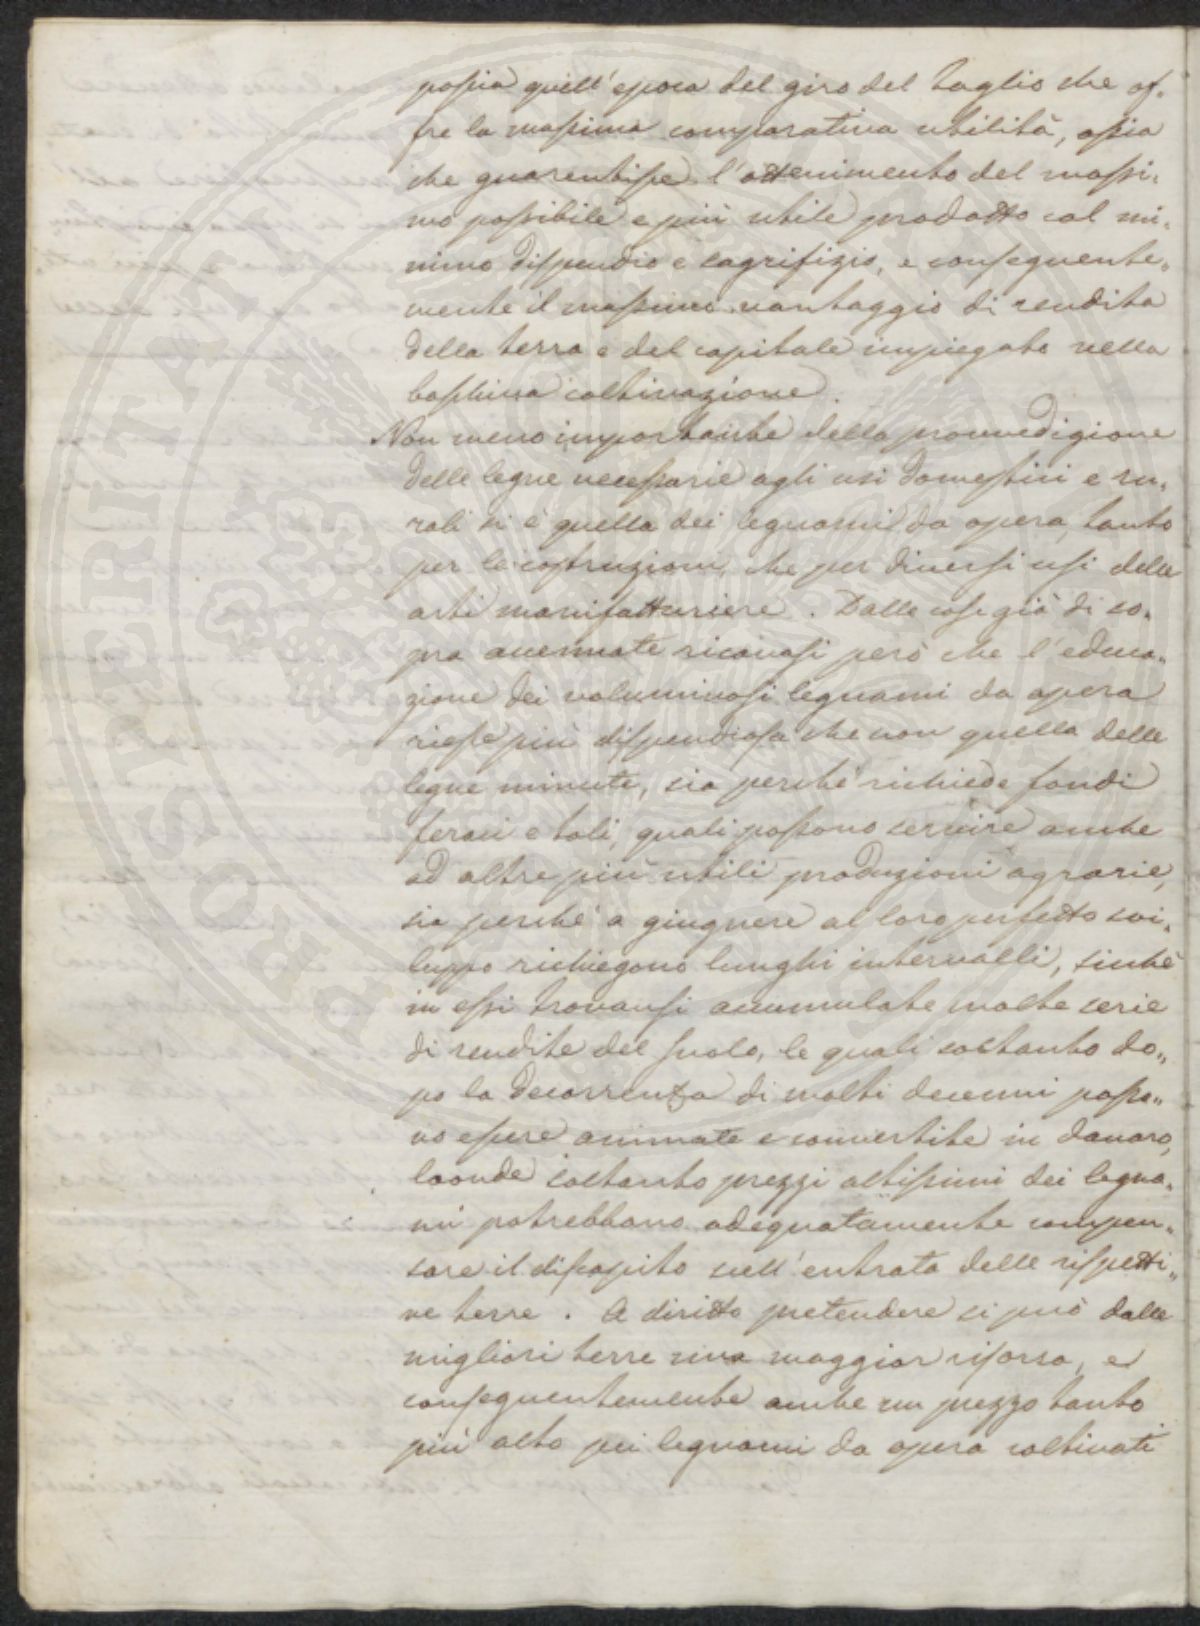 possia quell'epoca del giro del taglio che of-
fre la massima comparativa utilità, ossia
che guarentisse l'ottenimento del massi-
mo possibile e più utile prodotto col mi-
nimo dispendio e sagrifizio, e conseguente-
mente il massimo vantaggio di rendita
della terra e del capitale impiegato nella
boschiva coltivazione.
Non meno importante della provvedigione
delle legne necessarie agli usi domestici e ru-
rali si è quella dei legnami da opera, tanto
per le costruzioni, che per diversi usi delle
arti manifatturiere. Dalle cose già di so-
pra accennate ricavasi però che l'educa-
zione dei voluminosi legnami da opera
riesce più dispendiosa che non quella delle
legne minute, sia perchè richiede fondi
feraci e tali, quali possono servire anche
ad altre più utili produzioni agrarie,
sia perchè a giugnere al loro perfetto svi-
luppo richiegono lunghi intervalli, sicchè
in essi trovansi accumulate molte serie
di rendite del suolo, le quali soltanto do-
po la decorrenza di molti decenni posso-
no essere animate e convertite in danaro,
laonde soltanto prezzi altissimi dei legna-
mi potrebbono adeguatamente compen-
sare il discapito sull'entrata delle rispetti-
ve terre. A diritto pretendere si può dalle
migliori terre una maggior risorsa, e
conseguentemente anche un prezzo tanto
più alto pei legnami da opera coltivati
PROSPERITATI